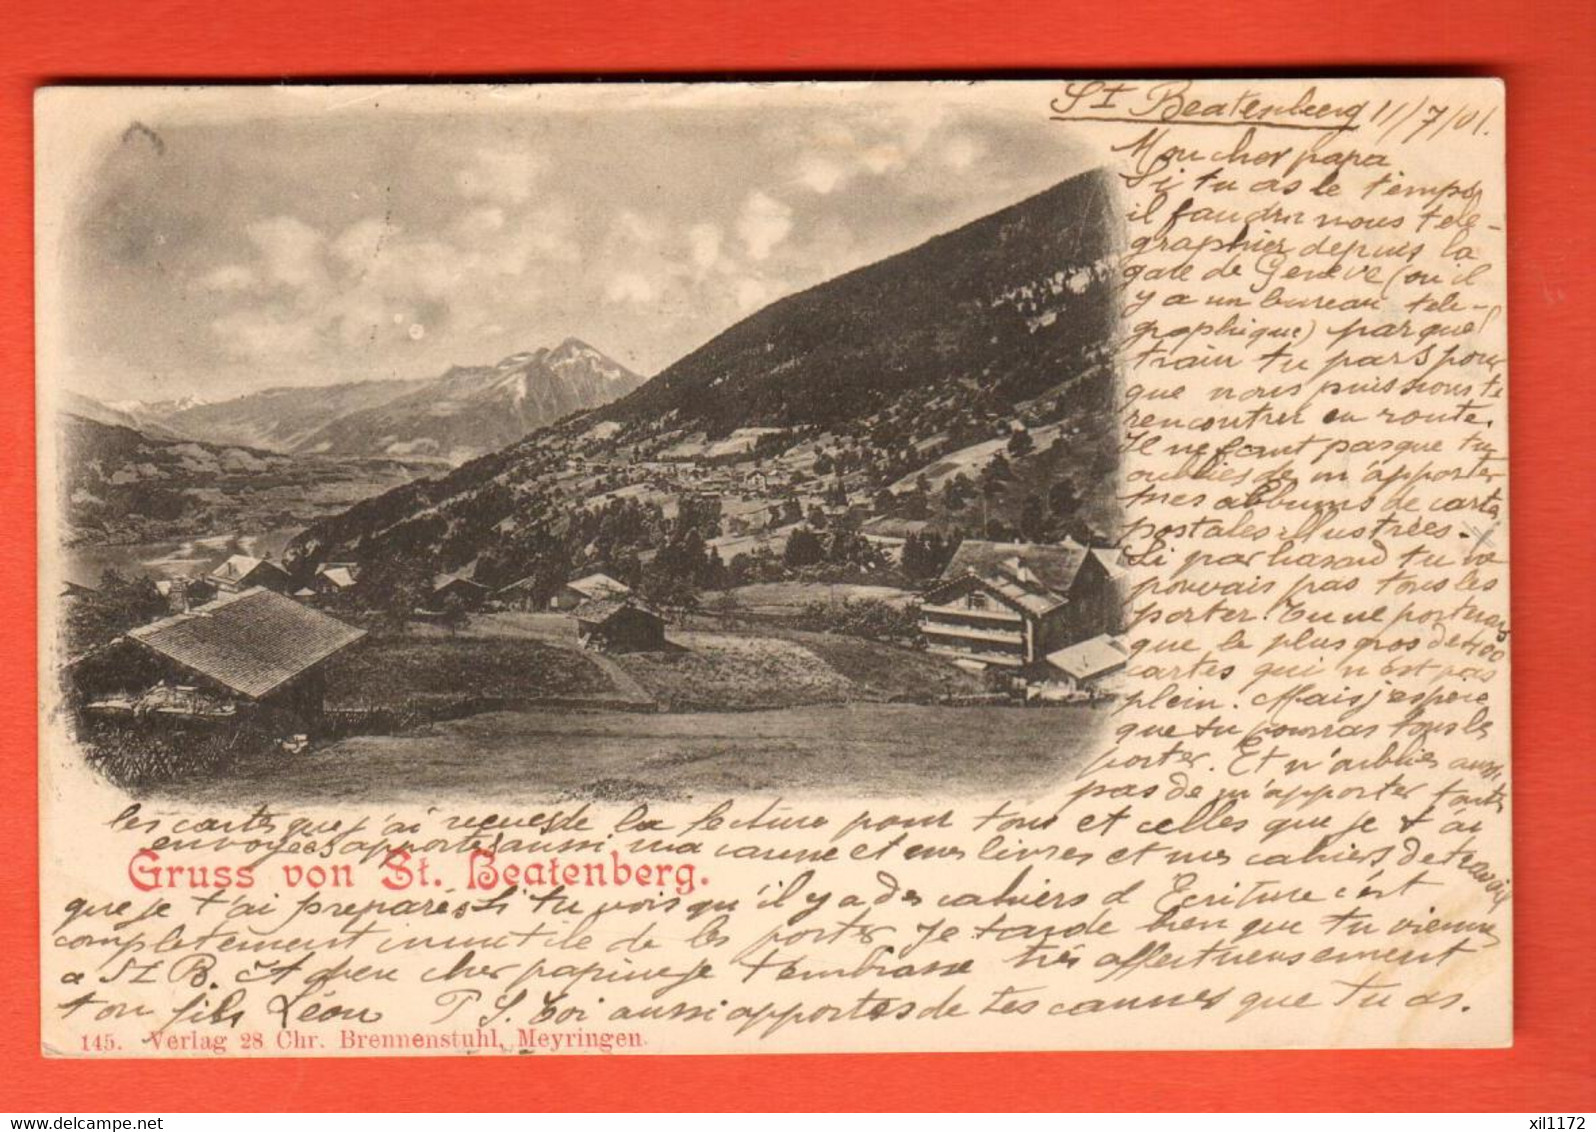 St Beatenberg 11/7/01.
Mon cher papa
Si tu as le temps,
il faudra nous tele-
graphier depuis la
gare de Genève (ou il
y a un bureau tele-
graphique) par quel
train tu pars pour
que nous puissions te
rencontrer en route.
Il ne faut pas que tu
oublies de m'apporter
mes albums de cartes
postales illustrées.
Si par hasard tu ne
pouvais pas tous les
porter. Tu ne porterais
que le plus gros de 400
cartes qui n'est pas
plein. Mais j'espère
que tu pourras tous les
porter. Et n'oublies aussi
pas de m'apporter toutes
les cartes que j'ai reçues de la lecture pour tous et celles que je t'ai
envoyées apportes aussi ma canne et mes livres et mes cahiers de travail
Gruss von St. Beatenberg.
que je t'ai préparés Si tu vois qu'il y a des cahiers d'Ecriture c'est
completement inutile de les porter Je tarde bien que tu viennes
a St B. et dieu cher papine je t'embrasse très affectueusement
ton fils Léon P S. toi aussi apportes de tes cannes que tu as.
145. Verlag 28 Chr. Brennenstuhl, Meyringen.
xil1172